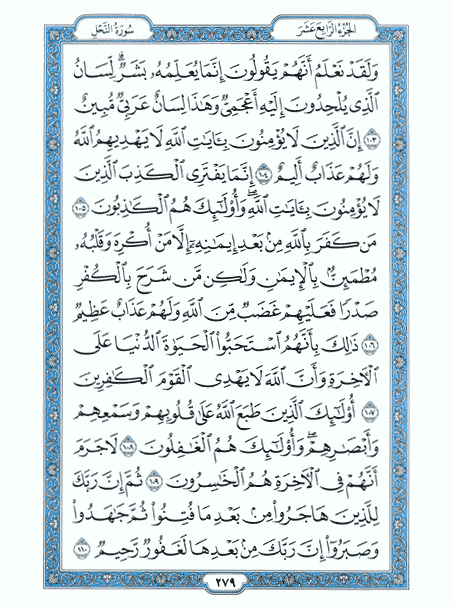 سُورَةُ النَّحْلِ الجُزْءُ الرَّابِعَ عَشَرَ
وَلَقَدْ نَعْلَمُ أَنَّهُمْ يَقُولُونَ إِنَّمَا يُعَلِّمُهُۥ بَشَرٌۗ لِّسَانُ
ٱلَّذِى يُلْحِدُونَ إِلَيْهِ أَعْجَمِىٌّ وَهَٰذَا لِسَانٌ عَرَبِىٌّ مُّبِينٌ
١٠٣ إِنَّ ٱلَّذِينَ لَا يُؤْمِنُونَ بِـَٔايَٰتِ ٱللَّهِ لَا يَهْدِيهِمُ ٱللَّهُ
وَلَهُمْ عَذَابٌ أَلِيمٌ ١٠٤ إِنَّمَا يَفْتَرِى ٱلْكَذِبَ ٱلَّذِينَ
لَا يُؤْمِنُونَ بِـَٔايَٰتِ ٱللَّهِۖ وَأُو۟لَٰٓئِكَ هُمُ ٱلْكَٰذِبُونَ ١٠٥
مَن كَفَرَ بِٱللَّهِ مِنۢ بَعْدِ إِيمَٰنِهِۦٓ إِلَّا مَنْ أُكْرِهَ وَقَلْبُهُۥ
مُطْمَئِنٌّۢ بِٱلْإِيمَٰنِ وَلَٰكِن مَّن شَرَحَ بِٱلْكُفْرِ
صَدْرًا فَعَلَيْهِمْ غَضَبٌ مِّنَ ٱللَّهِ وَلَهُمْ عَذَابٌ عَظِيمٌ
١٠٦ ذَٰلِكَ بِأَنَّهُمُ ٱسْتَحَبُّوا۟ ٱلْحَيَوٰةَ ٱلدُّنْيَا عَلَى
ٱلْءَاخِرَةِ وَأَنَّ ٱللَّهَ لَا يَهْدِى ٱلْقَوْمَ ٱلْكَٰفِرِينَ
١٠٧ أُو۟لَٰٓئِكَ ٱلَّذِينَ طَبَعَ ٱللَّهُ عَلَىٰ قُلُوبِهِمْ وَسَمْعِهِمْ
وَأَبْصَٰرِهِمْۖ وَأُو۟لَٰٓئِكَ هُمُ ٱلْغَٰفِلُونَ ١٠٨ لَا جَرَمَ
أَنَّهُمْ فِى ٱلْءَاخِرَةِ هُمُ ٱلْخَٰسِرُونَ ١٠٩ ثُمَّ إِنَّ رَبَّكَ
لِلَّذِينَ هَاجَرُوا۟ مِنۢ بَعْدِ مَا فُتِنُوا۟ ثُمَّ جَٰهَدُوا۟
وَصَبَرُوٓا۟ إِنَّ رَبَّكَ مِنۢ بَعْدِهَا لَغَفُورٌ رَّحِيمٌ ١١٠
٢٧٩